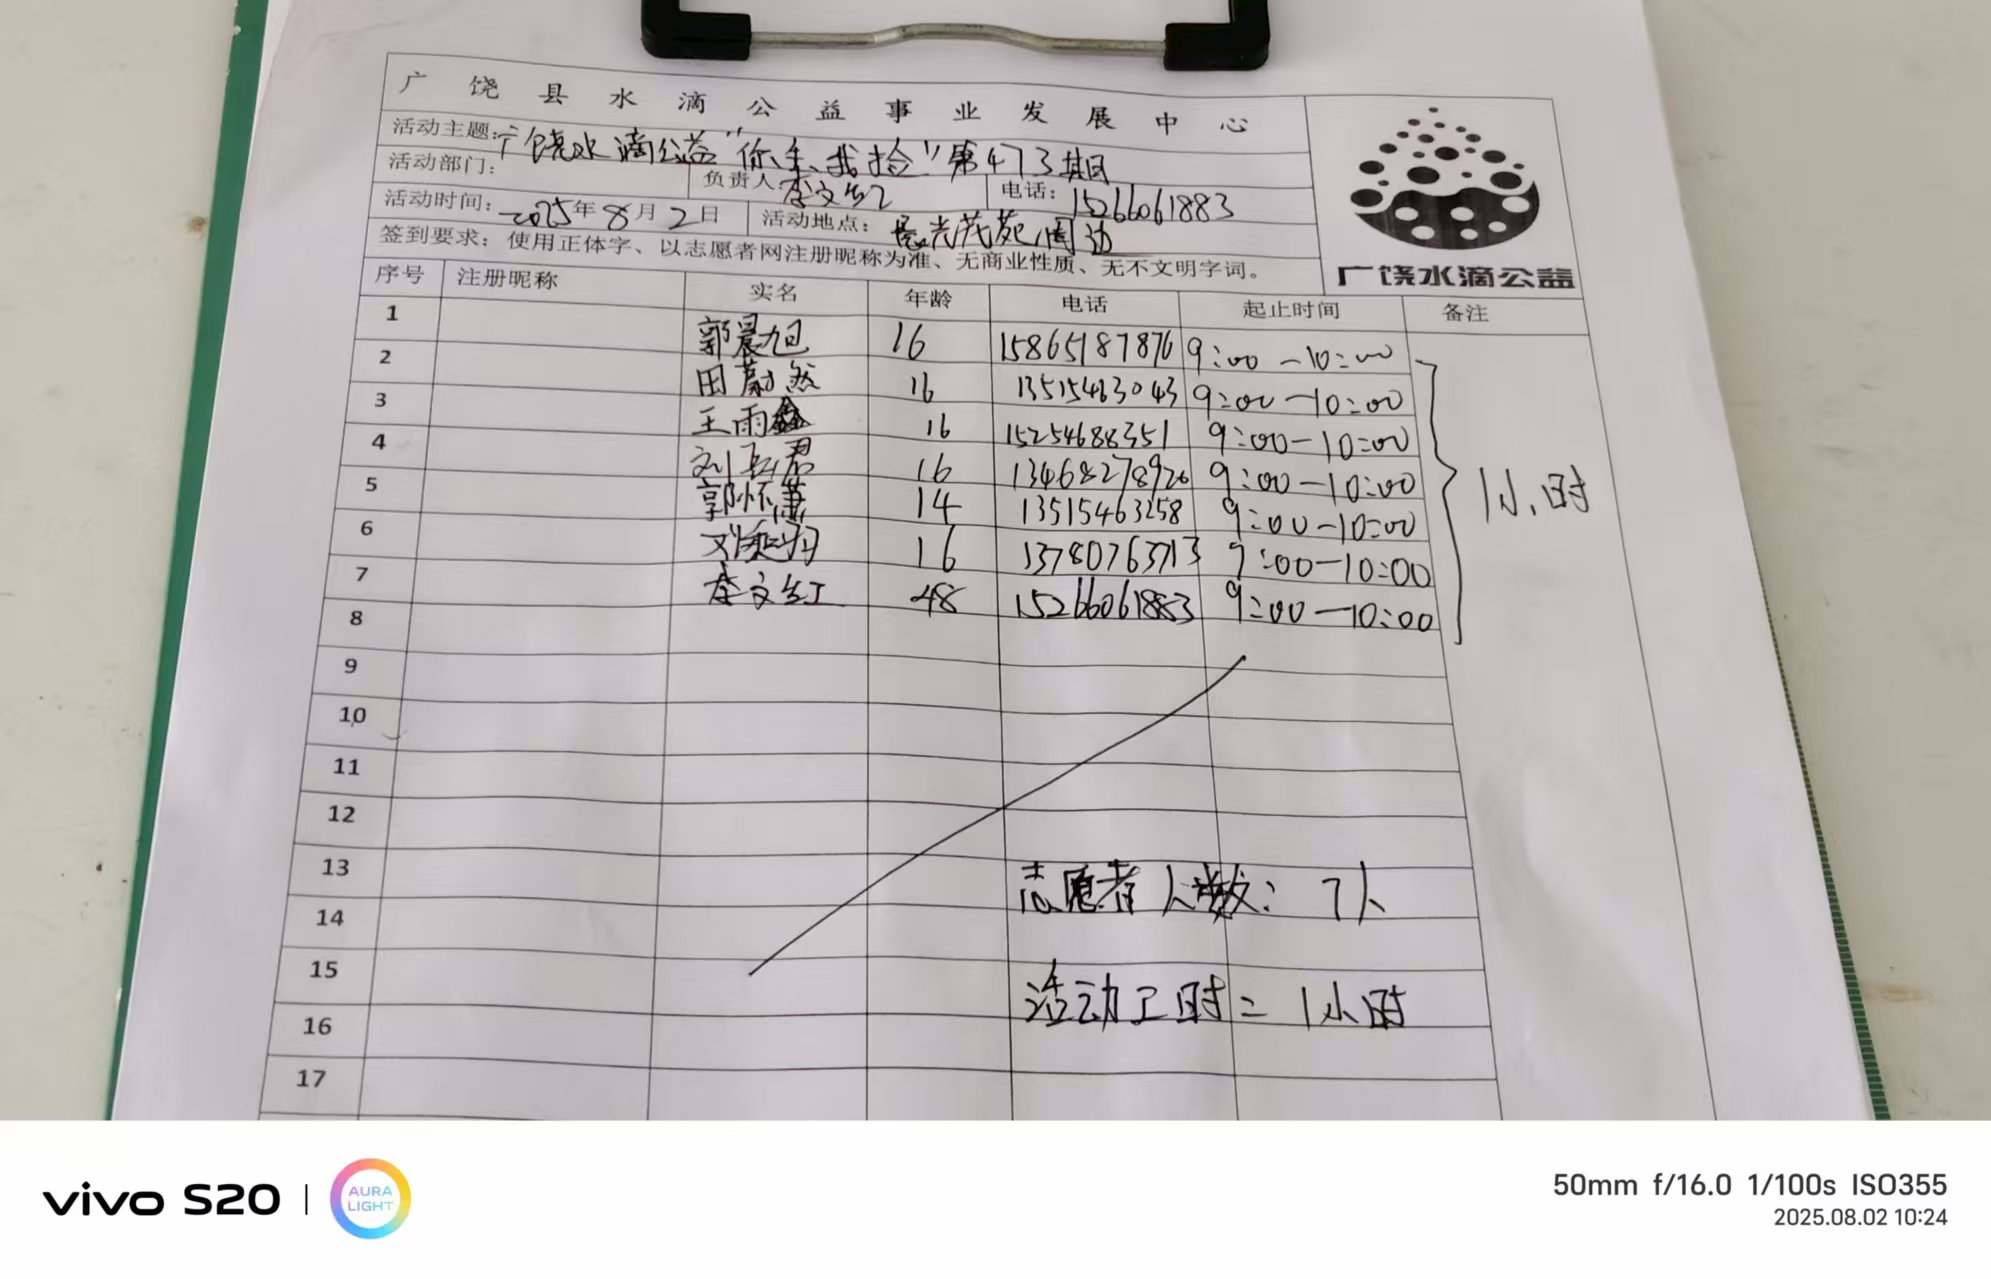 广饶县水滴公益事业发展中心
活动主题:广饶水滴公益“你丢我捡”第473期
活动部门: 负责人 李文红 电话: 15266061883
活动时间: 2025年8月2日 活动地点: 晨光茂苑周边
签到要求: 使用正体字、以志愿者网注册昵称为准、无商业性质、无不文明字词。
广饶水滴公益
序号 注册昵称 实名 年龄 电话 起止时间 备注
1 郭晨旭 16 15865187876 9:00-10:00
2 田蔚然 16 13515463043 9:00-10:00
3 王雨鑫 16 15254688351 9:00-10:00
4 刘君 16 13468278920 9:00-10:00
1小时
5 郭怀萧 14 13515463258 9:00-10:00
6 刘 16 13780763713 9:00-10:00
7 李文红 48 15266061883 9:00-10:00
8
9
10
11
12
13 志愿者人数: 7人
14
15 活动工时: 1小时
16
17
vivo S20 | AURA LIGHT
50mm f/16.0 1/100s ISO355
2025.08.02 10:24